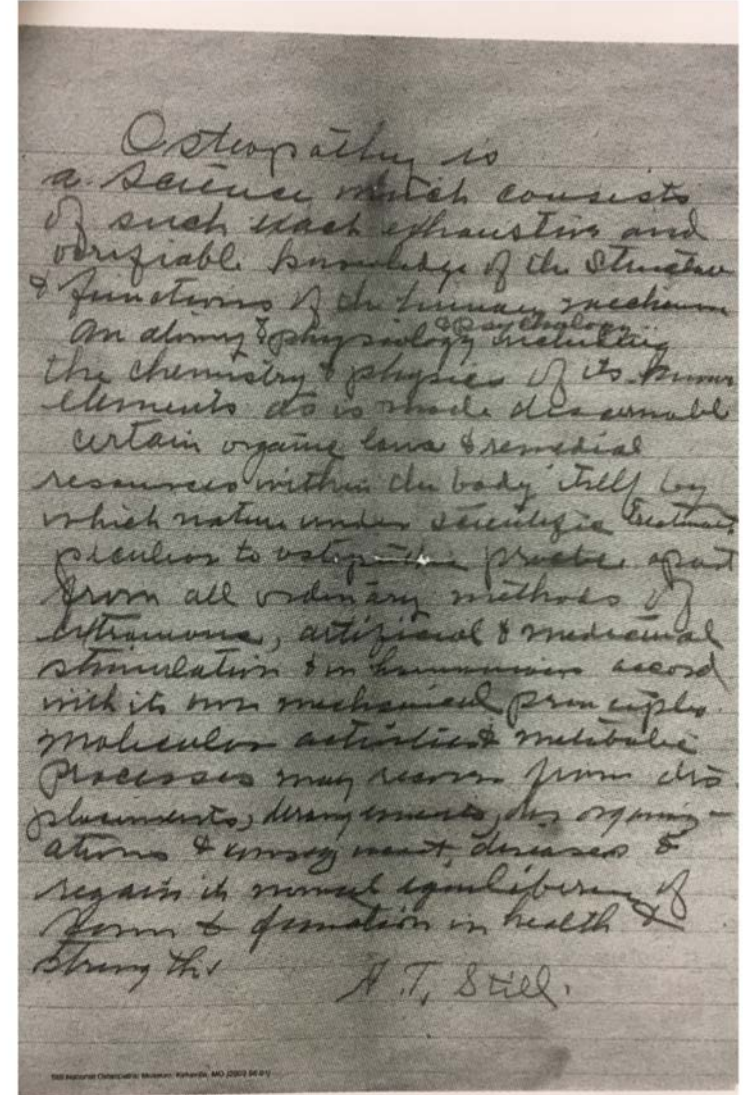 Osteopathy is
a science which consists
of such exact exhaustive and
verifiable knowledge of the structure
& functions of the human mechanism
& psychology
anatomy & physiology including
the chemistry & physics of its known
elements as is made discernable
certain organic laws & remedial
resources within the body itself by
which nature under scientific treatment
peculiar to osteopathic practice apart
from all ordinary methods of
extraneous, artificial & medicinal
stimulation & in harmonious accord
with its own mechanical principles
molecular activities & metabolic
processes may recover from dis
placements, derangements, dis organiz-
ations & consequent diseases &
regain its normal equilibrium of
form & function in health &
strength.
A. T. Still.
Still National Osteopathic Museum, Kirksville, MO